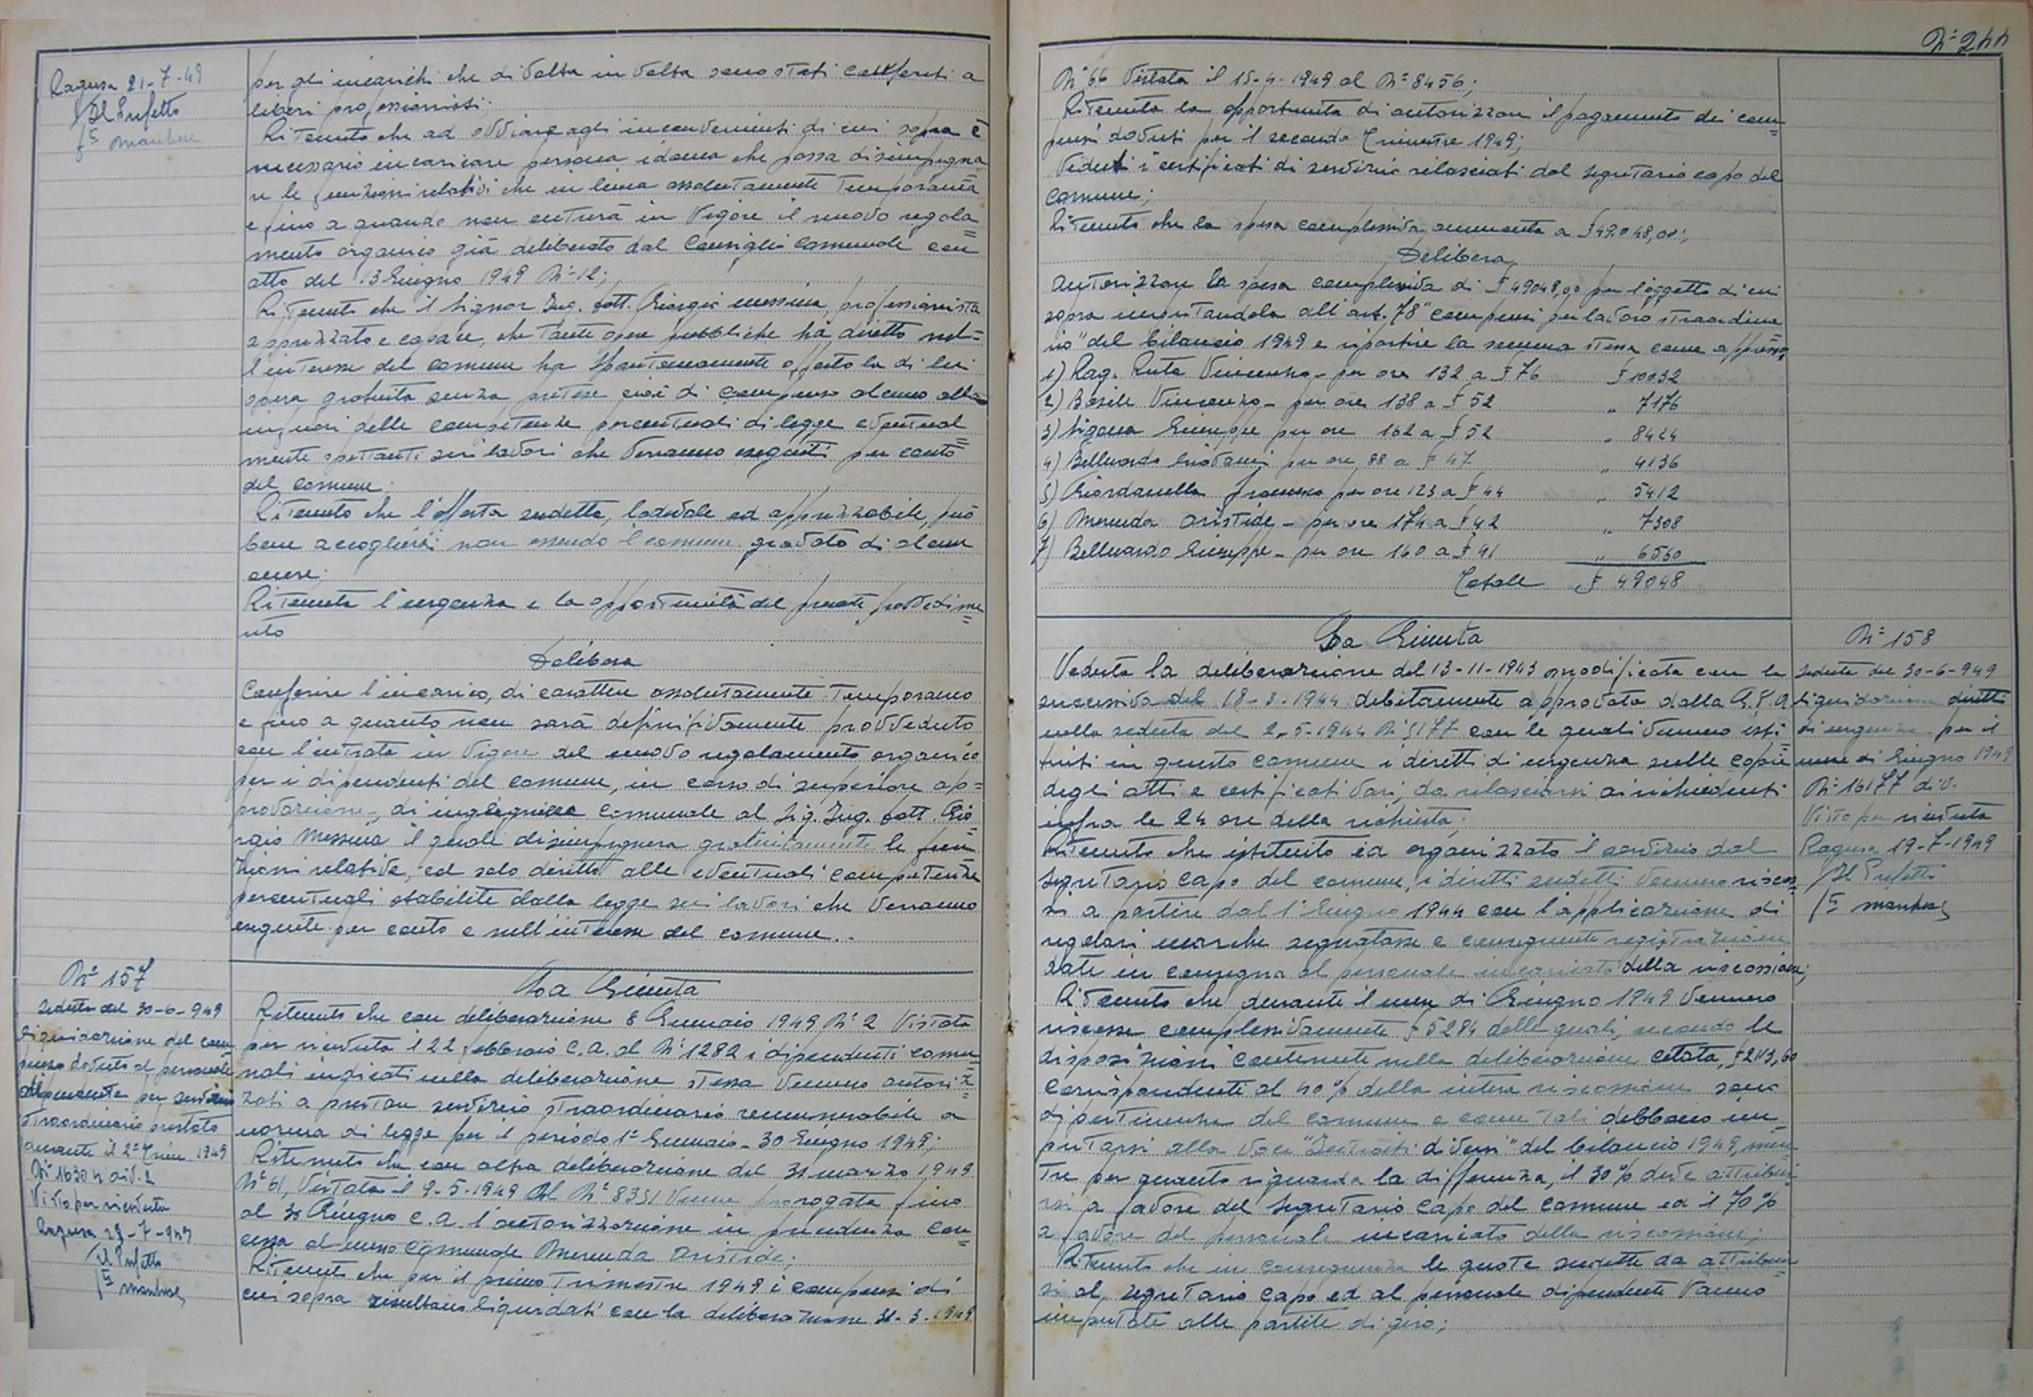 Ragusa 21-7-49
Il Prefetto
per gli incarichi che di volta in volta sono stati conferiti a
liberi professionisti;
Ritenuto che ad ovviare agli inconvenienti di cui sopra è
necessario incaricare persona idonea che possa disimpegna=
re le funzioni relativi che in linea assolutamente temporanea
e fino a quando non entrerà in vigore il nuovo regola=
mento organico già deliberato dal Consiglio Comunale con
atto del 13 Giugno 1949 N° 12;
Ritenuto che il Signor Ing. Dott. Giorgio Messina, professionista
apprezzato e capace, che tante opere pubbliche ha diretto nel=
l'interesse del comune ha spontaneamente offerto la di lui
opera gratuita senza pretese cioè di compenso alcuno all'in
fuori delle competenze percentuali di legge eventual=
mente spettanti sui lavori che verranno eseguiti per conto
del comune;
Ritenuto che l'offerta sudetta, lodevole ed apprezzabile, può
bene accogliersi non essendo il comune gravato di alcun
onere;
Ritenuta l'urgenza e la opportunità del presente provvedime=
nto
Delibera
Conferire l'incarico, di carattere assolutamente temporaneo
e fino a quanto non sarà definitivamente provveduto
con l'entrata in vigore del nuovo regolamento organico
per i dipendenti del comune, in corso di superiore ap=
provazione, di ingegnere comunale al Sig. Ing. Dott. Gio=
rgio Messina il quale disimpegnerà gratuitamente le fun=
zioni relative, col solo diritto alle eventuali competenze
percentuali stabilite dalla legge sui lavori che verranno
eseguite per conto e nell'interesse del comune..
N° 157
Seduta del 30-6-949
Liquidazione del com
penso dovuto al personale
dipendente per servizio
straordinario prestato
durante il 2° Trim. 1949
N° 16304 div. 2
Visto per ricevuta
Ragusa 29-7-949
Il Prefetto
La Giunta
Ritenuto che con deliberazione 8 Gennaio 1949 N° 2 Vistata
per ricevuta il 22 febbraio c.a. al N° 1282 i dipendenti comu=
nali indicati nella deliberazione stessa vennero autoriz=
zati a prestare servizio straordinario remunerabile a
norma di legge per il periodo 1° Gennaio - 30 Giugno 1949;
Ritenuto che con altra deliberazione del 31 marzo 1949
N° 61, Vistata il 9-5-1949 al N° 8351 venne prorogata fino
al 30 Giugno c.a. l'autorizzazione in precedenza con=
cessa al messo comunale Merenda Aristide;
Ritenuto che per il primo trimestre 1949 i compensi di
cui sopra risultano liquidati con la deliberazione 31-3-1949
N° 244
N° 66 Vistata il 15-4-1949 al N° 8456;
Ritenuta la opportunità di autorizzare il pagamento dei com=
pensi dovuti per il secondo Trimestre 1949;
Veduti i certificati di servizio rilasciati dal Segretario capo del
Comune;
Ritenuto che la spesa complessiva ammonta a £ 49.048,00;
Delibera
Autorizzare la spesa complessiva di £ 49048,00 per l'oggetto di cui
sopra imputandola all'art. 78 "compensi per lavoro straordina
rio" del bilancio 1949 e ripartire la somma stessa come appresso
1) Rag. Ruta Vincenzo - per ore 132 a £ 76 £ 10032
2) Basile Vincenzo - per ore 138 a £ 52 " 7176
3) Sigona Giuseppe per ore 162 a £ 52 " 8424
4) Belluardo Giovanni per ore 88 a £ 47 " 4136
5) Giordanella Francesco per ore 123 a £ 44 " 5412
6) Merenda Aristide - per ore 174 a £ 42 " 7308
7) Belluardo Giuseppe - per ore 160 a £ 41 " 6560
Totale £ 49048
La Giunta
Veduta la deliberazione del 13-11-1943 modificata con la
successiva del 18-3-1944 debitamente approvata dalla G.P.A.
nella seduta del 2-5-1944 N° 5177 con le quali vennero isti=
tuiti in questo comune i diritti di urgenza sulle copie
degli atti e certificati vari, da rilasciarsi ai richiedenti
infra le 24 ore della richiesta;
Ritenuto che istituito ed organizzato il servizio dal
Segretario Capo del comune, i diritti sudetti vennero riscos
si a partire dal 1° Giugno 1944 con l'applicazione di
regolari marche segnatasse e conseguente registrazione
date in consegna al personale incaricato della riscossione;
Ritenuto che durante il mese di Giugno 1949 vennero
riscosse complessivamente £ 5284 delle quali, secondo le
disposizioni contenute nella deliberazione citata, £ 2113,60
corrispondenti al 40% della intera riscossione sono
di pertinenza del comune e come tali debbono im=
putarsi alla voce "Introiti diversi" del bilancio 1949, men
tre per quanto riguarda la differenza, il 30% deve attribuir
si a favore del Segretario Capo del comune ed il 70%
a favore del personale incaricato della riscossione;
Ritenuto che in conseguenza le quote sudette da attribuir
si al Segretario Capo ed al personale dipendente vanno
imputate alle partite di giro;
N° 158
Seduta del 30-6-949
Liquidazione diritti
di urgenza per il
mese di Giugno 1949
N° 16177 div.
Visto per ricevuta
Ragusa 19-7-1949
Il Prefetto